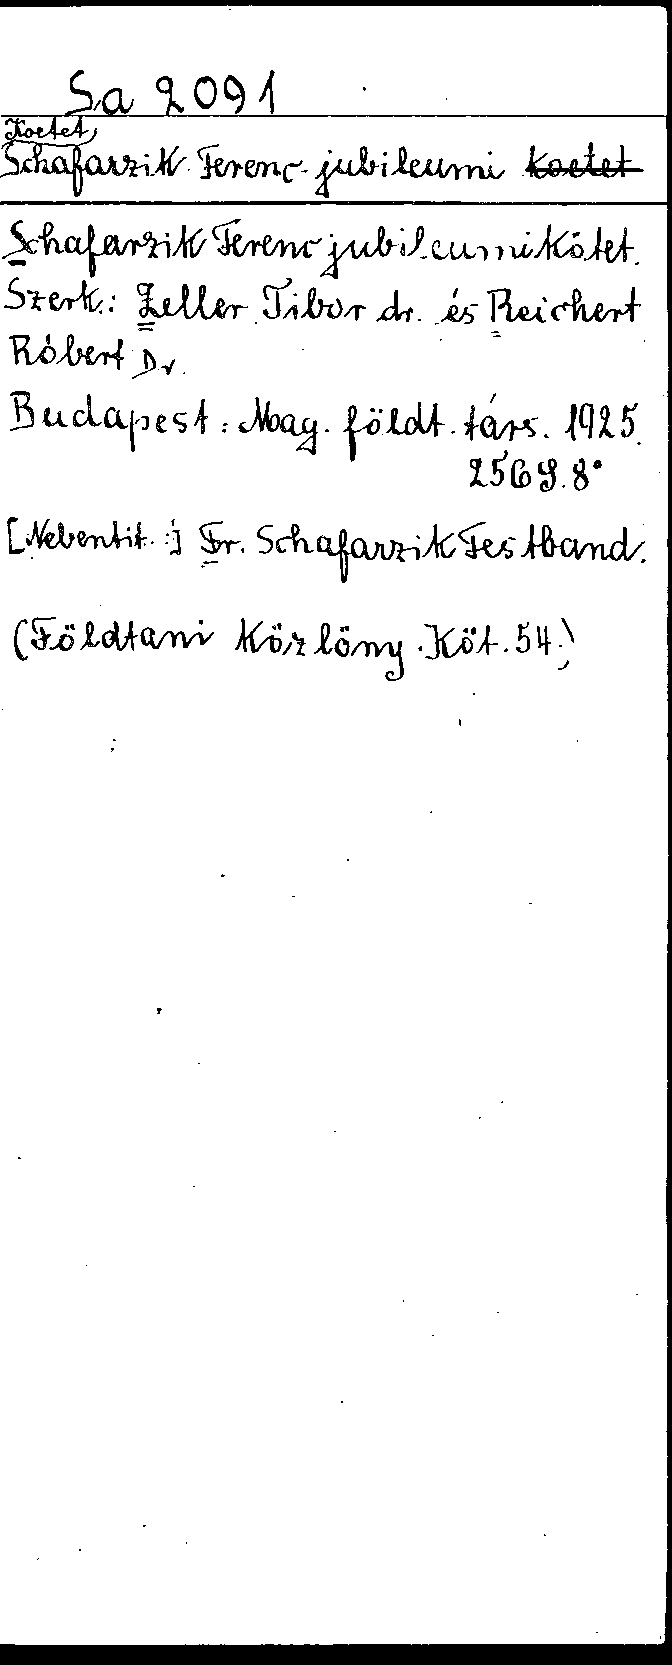 Sa 2091
Koetet,
Schafarzik Ferenc jubileumi koetet
Schafarzik Ferenc jubileumi kötet.
Szerk.: Zeller Tibor dr. és Reichert
Róbert Dr.
Budapest: Mag. földt. társ. 1925.
256 S. 8°
[Nebentit.:] Fr. Schafarzik Festband.
(Földtani Közlöny. Köt. 54.)